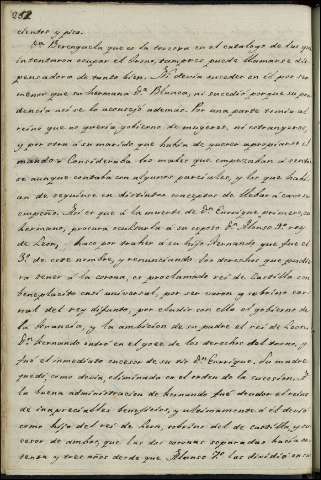 282
cientos y pico.
Dn Berenguela que es la tercera en el catalogo de las que
intentaron ocupar el trono, tampoco puede llamarse dis
pensadora de tanto bien. Ni devia suceder en el por ser
menor que su hermana Dª Blanca, ni sucedió porque su pru
dencia asi se lo aconsejó ademas. Por una parte temia al
reino que no queria gobierno de mugeres, ni estrangeros,
y por otra á su marido que habia de querer apropiarse el
mando. Consideraba los males que empezaban á sentir
se aunque contaba con algunos parciales, y los que habi
an de seguirse en distintos conceptos de llebar á cavo su
empeño. Asi es que á la muerte de Dn Enrrique primero, su
hermano, procura ocultarla á su esposo Dn Alonso 9º rey
de Leon, hace por traher á su hijo Fernando que fue el
3º de este nombre, y renunciando los derechos que pudie
ra tener á la corona, es proclamado rei de Castilla con
beneplacito casi universal, por ser varon y sobrino car
nal del rey difunto, por eludir con ello el gobierno de
la Ynfancia, y la ambicion de su padre el rei de Leon.
Dn Fernando entró en el goce de los derechos del trono, y
fué el inmediato sucesor de su tio Dn Enrrique. Su madre
quedó, como devia, eliminada en el orden de la sucesion. A
la buena administracion de Fernando fué deudor el reino
de inapreciables beneficios, y ultimamente á el devió
como hijo del rei de Leon, sobrino del de Castilla, y su
cesor de ambos, que las dos coronas separadas hacia se
tenta y tres años desde que Alonso 7º las dividió en su